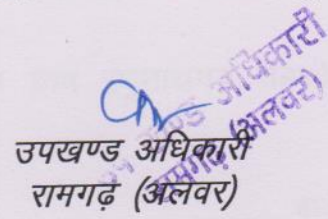 उपखण्ड अधिकारी
रामगढ़ (अलवर)
उप खण्ड अधिकारी
रामगढ़ (अलवर)